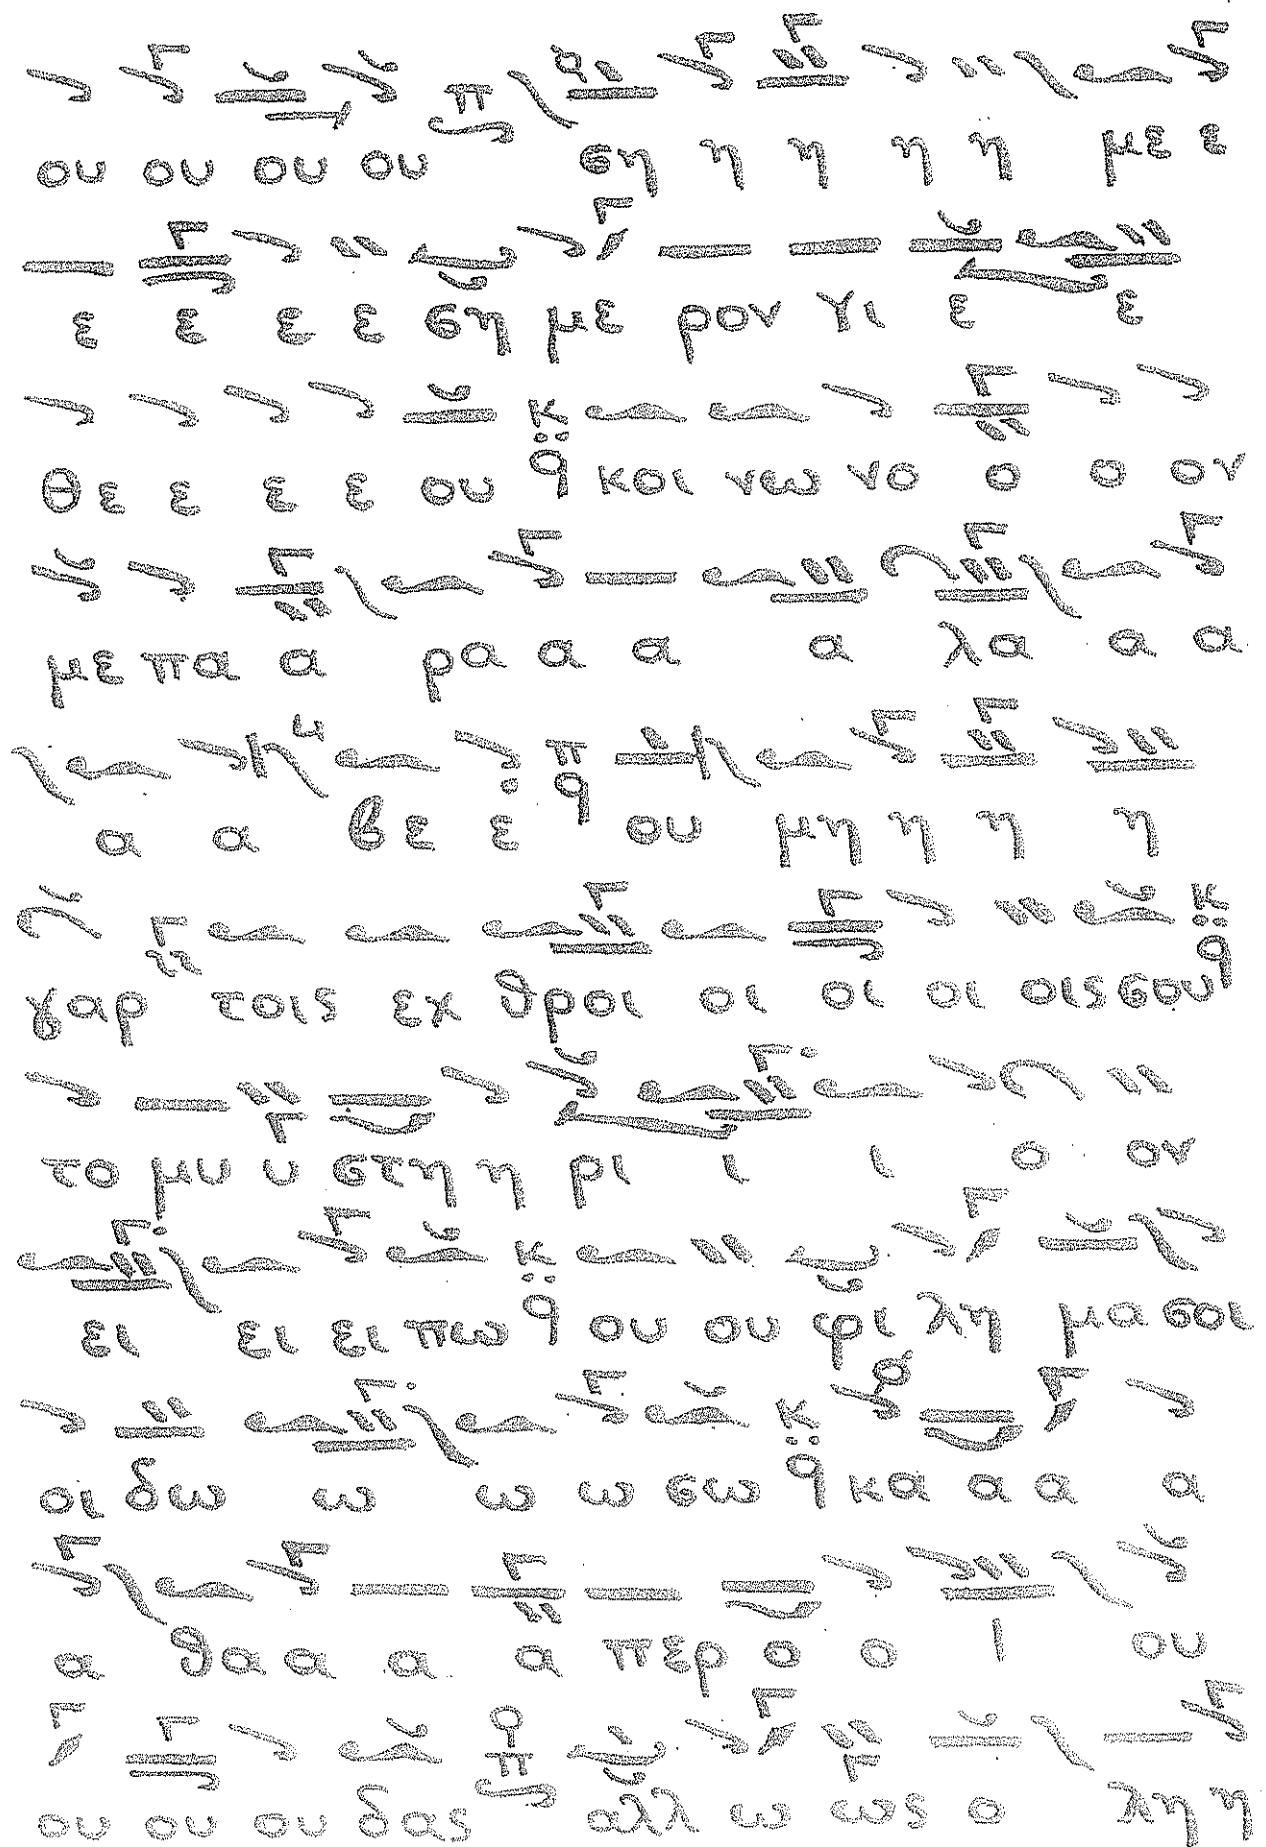 ου ου ου ου ση η η η η με ε
ε ε ε ε ση με ρον γι ε ε
θε ε ε ε ου κοι νω νο ο ο ον
με πα α ρα α α α λα α α
α α βε ε ου μη η η η
γαρ τοις εχ θροι οι οι οι οις σου
το μυ υ στη η ρι ι ι ο ον
ει ει ει πω ου ου φι λη μα σοι
οι δω ω ω ω σω κα α α α
α θα α α α περ ο ο Ι ου
ου ου ου δας αλλ ω ως ο λη η